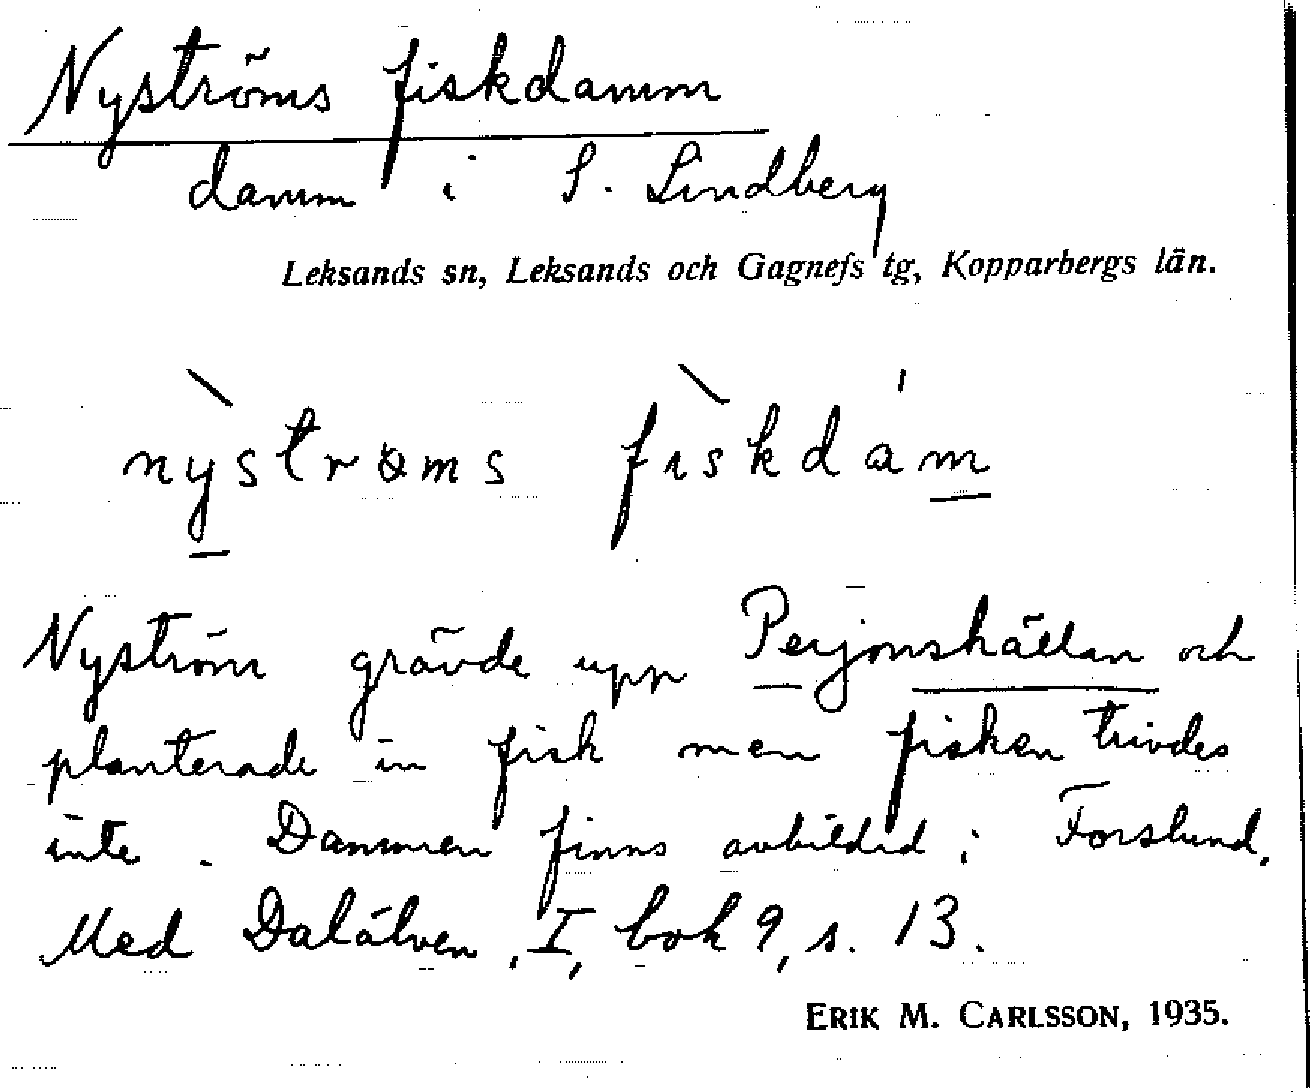 Nyströms fiskdamm
damm i S. Lindberg
Leksands sn, Leksands och Gagnefs tg, Kopparbergs län.
nystrøms fiskdam
Nyström grävde upp Perjonskällan och
planterade in fisk men fisken trivdes
inte. Dammen finns avbildad i Forslund,
Med Dalälven, I, bok 9, s. 13.
ERIK M. CARLSSON, 1935.